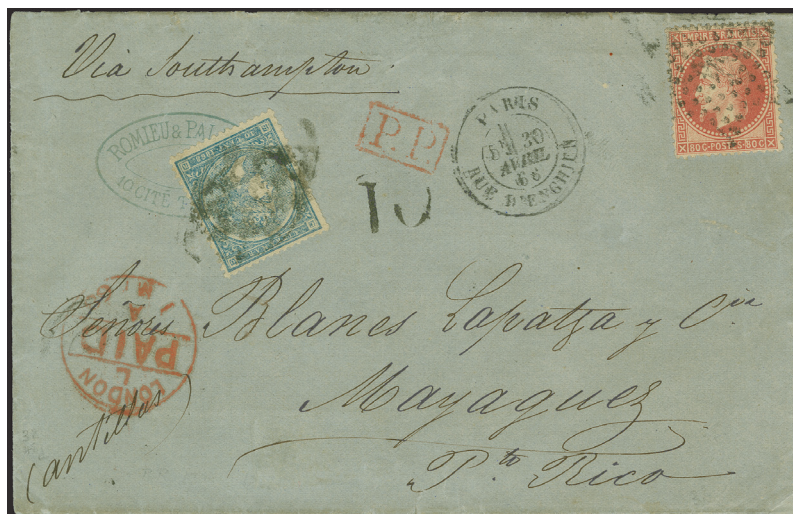 Via Southampton
ROMIEU & PAL
10 CITÉ
P.P.
PARIS
5E 30
AVRIL
RUE D'ENGHIEN
EMPIRE FRANÇAIS
80 C POSTES 80 C
10
LONDON
PAID
Señores Blanes Lapatza y Cia
Mayaguez
Pto Rico
(Antillas)